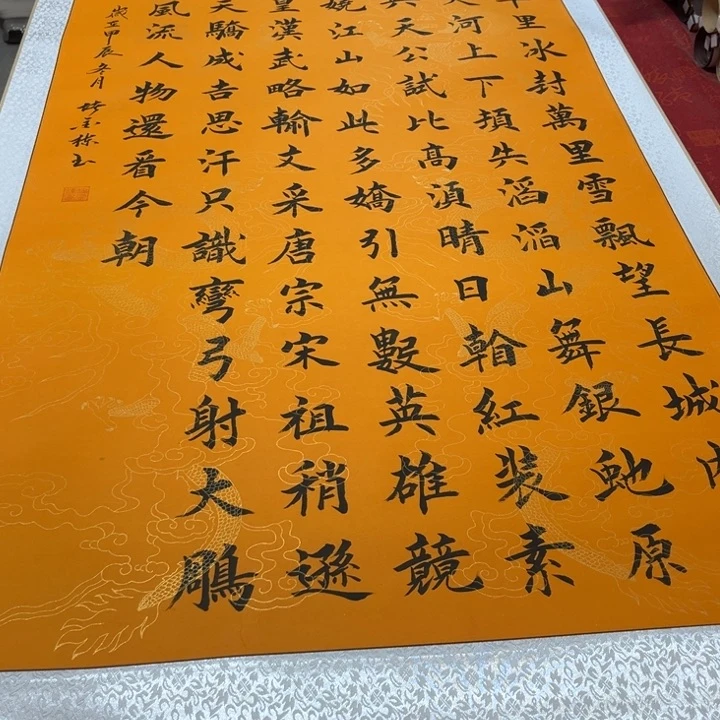 千里冰封萬里雪飄望長城内
大河上下頓失滔滔山舞銀蛇原
與天公試比高須晴日看紅裝素
嬈江山如此多嬌引無數英雄競
皇漢武略輸文采唐宗宋祖稍遜
天驕成吉思汗只識彎弓射大鵰
風流人物還看今朝
歲在甲辰冬月